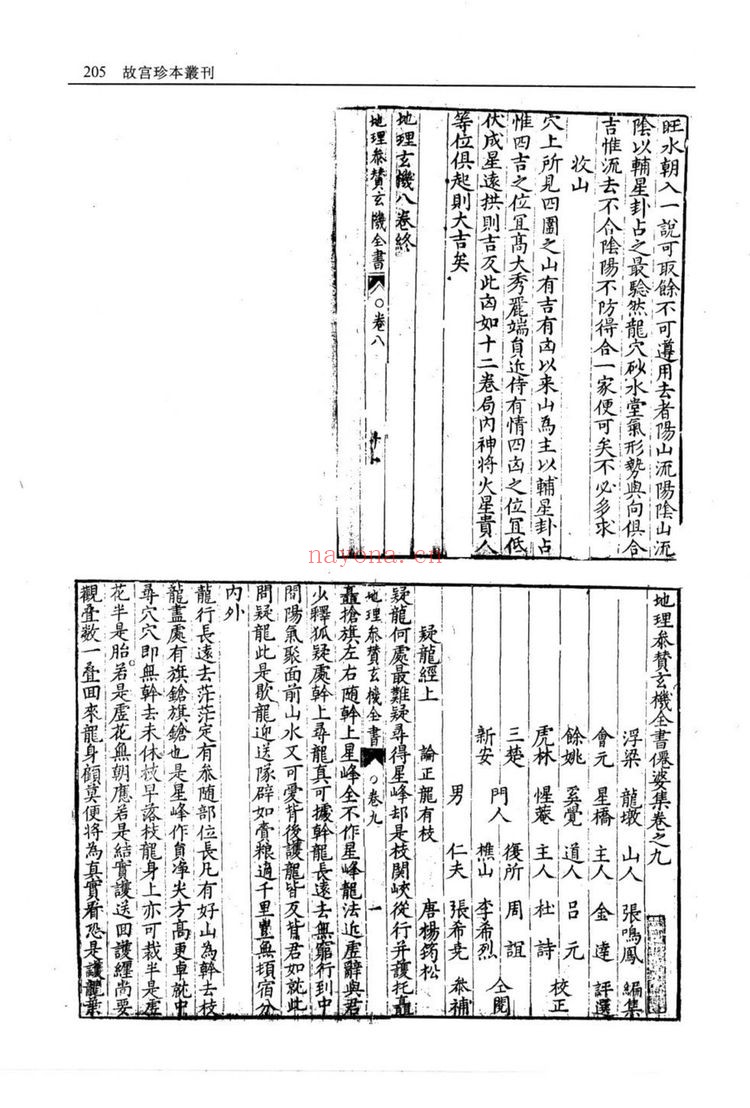 205 故宮珍本叢刊
旺水朝入一說可取餘不可遵用去者陽山流陽陰山流
陰以輔星卦占之最騐然龍穴砂水堂氣形勢與向俱合
吉惟流去不合陰陽不防得合一家便可矣不必多求
收山
穴上所見四圍之山有吉有凶以來山為主以輔星卦占
惟四吉之位宜高大秀麗端貟近侍有情四凶之位宜低
伏成星遠拱則吉反此凶如十二卷局內神將火星貴人
等位俱起則大吉矣
地理玄機八卷終
地理參贊玄機全書 ○卷八
nayona.cn
地理參贊玄機全書僊婆集卷之九
浮梁 龍墩 山人 張鳴鳳 編集
會元 星橋 主人 金達 評選
餘姚 奚覺 道人 呂元
虎林 惺菴 主人 杜詩 校正
三楚 門人 復所 周誼
新安 樵山 李希烈 仝閱
男 仁夫 張希堯 參補
疑龍經上 論正龍有枝 唐楊筠松
疑龍何處最難疑尋得星峰却是枝関峽從行并護托矗
地理參贊玄機全書 ○卷九 一
矗搶旗左右隨幹上星峰全不作星峰龍法近虛辭與君
少釋狐疑處幹上尋龍真可據幹龍長遠去無窮行到中
間陽氣聚面前山水又可愛背後護龍皆反背君如就此
問疑龍此是歇龍迎送隊辟如賫粮過千里豈無頓宿分
內外
龍行長遠去茫茫定有參隨部位長凡有好山為幹去枝
龍盡處有旗鎗旗鎗也是星峰作貟凈尖方高更卓就中
尋穴穴即無幹去未休枝早落枝龍身上亦可裁半是虛
花半是胎若是虛花無朝應若是結實護送回護纏尚要
觀叠数一叠回來龍身顧莫便將為真實看恐是護龍葉